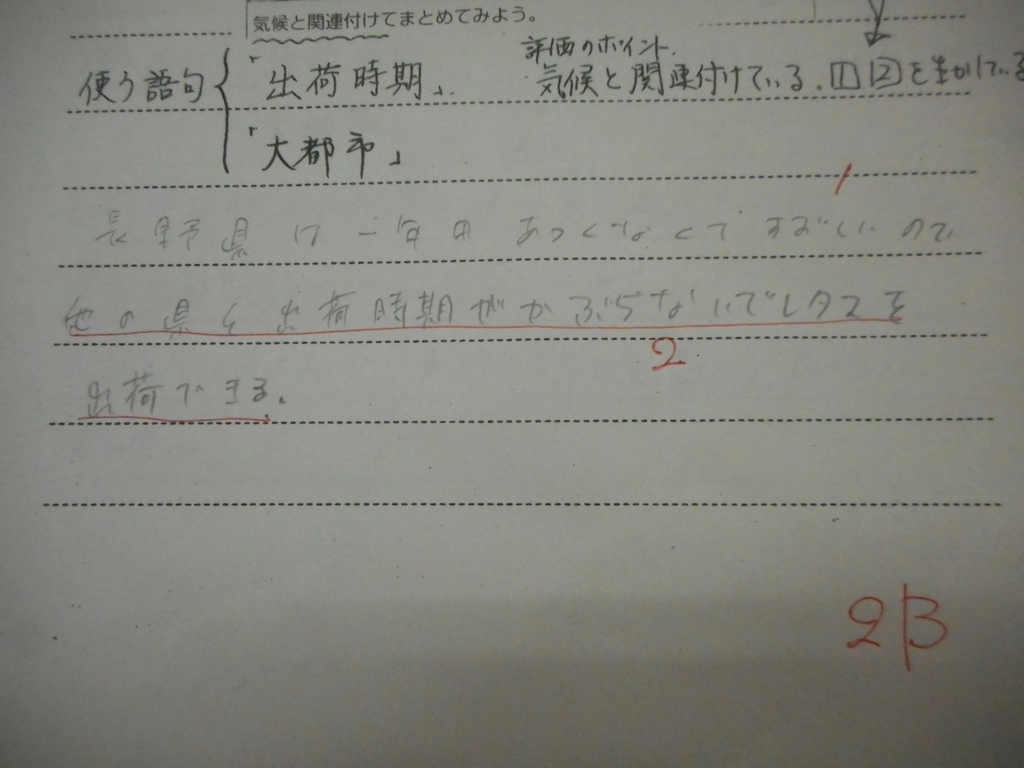 気候と関連付けてまとめてみよう。
評価のポイント
使う語句 「出荷時期」 気候と関連付けている。 1 2 を生かしている
「大都市」
1
長野県は一年中あつくなくてすずしいので
他の県と出荷時期がかぶらないでレタスを
2
出荷できる。
2 B